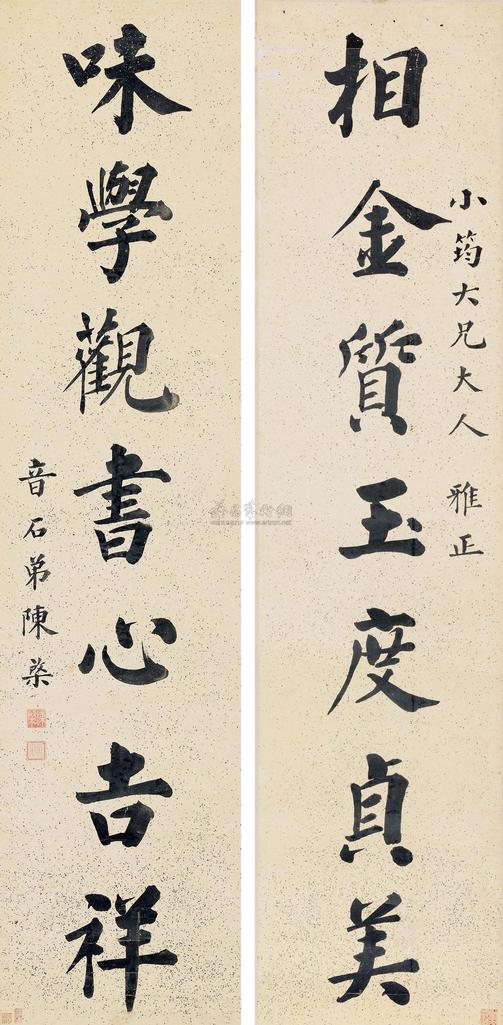 小筠大兄大人 雅正
相金質玉度貞美
味學觀書心吉祥
音石弟陳棨